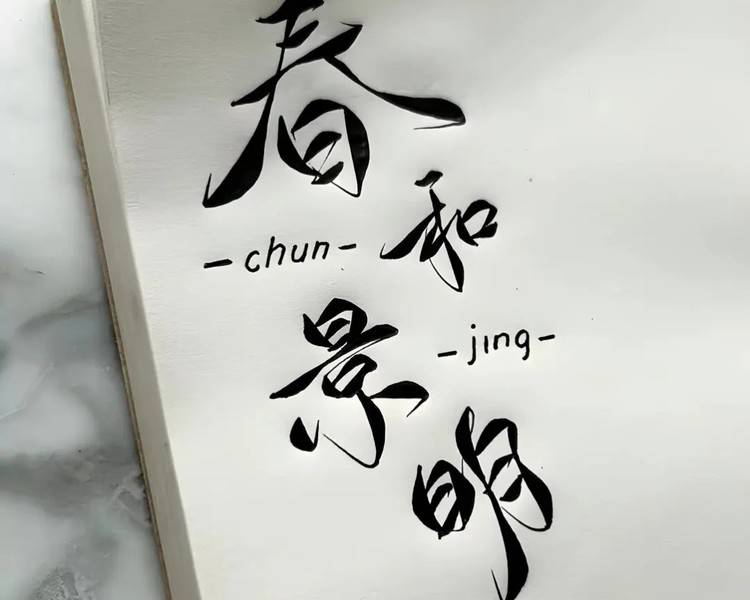 春
和
-chun-
景
-jing-
明